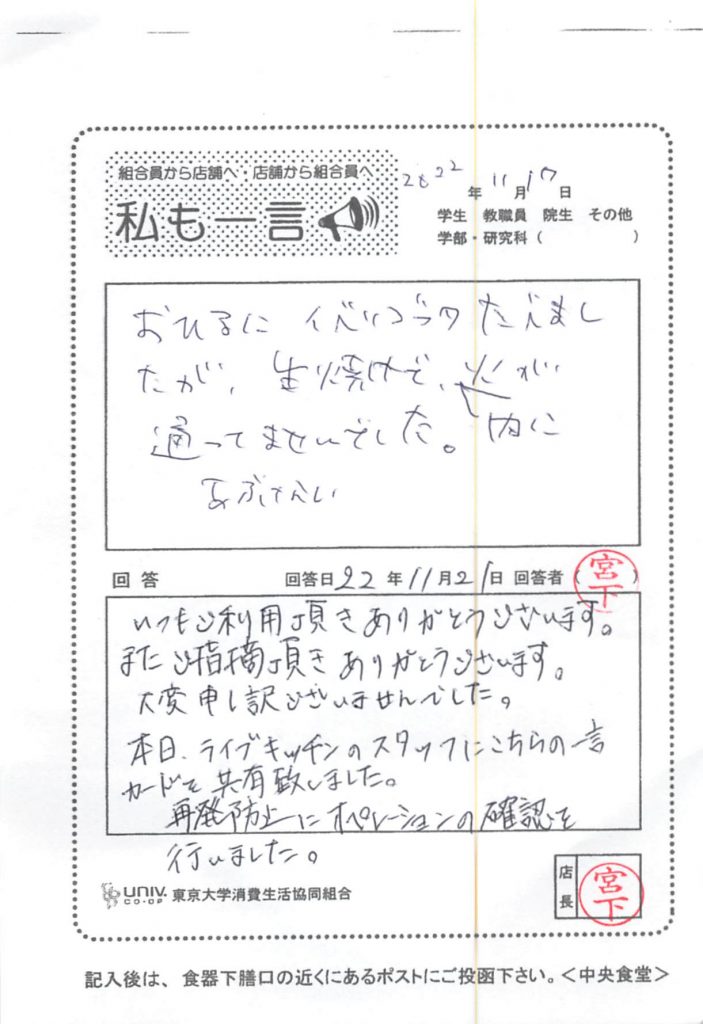 組合員から店舗へ・店舗から組合員へ
私も一言
2022年11月17日
学生 教職員 院生 その他
学部・研究科( )
おひるに イベリコブタ たべまし
たが、生焼けで、火が
通ってませんでした。内に
あぶない
回答 回答日22年11月21日 回答者(宮下)
いつもご利用頂きありがとうございます。
またご指摘頂きありがとうございます。
大変申し訳ございませんでした。
本日、ライブキッチンのスタッフにこちらの一言
カードを共有致しました。
再発防止にオペレーションの確認を
行いました。
UNIV. CO-OP 東京大学消費生活協同組合
店長 宮下
記入後は、食器下膳口の近くにあるポストにご投函下さい。<中央食堂>